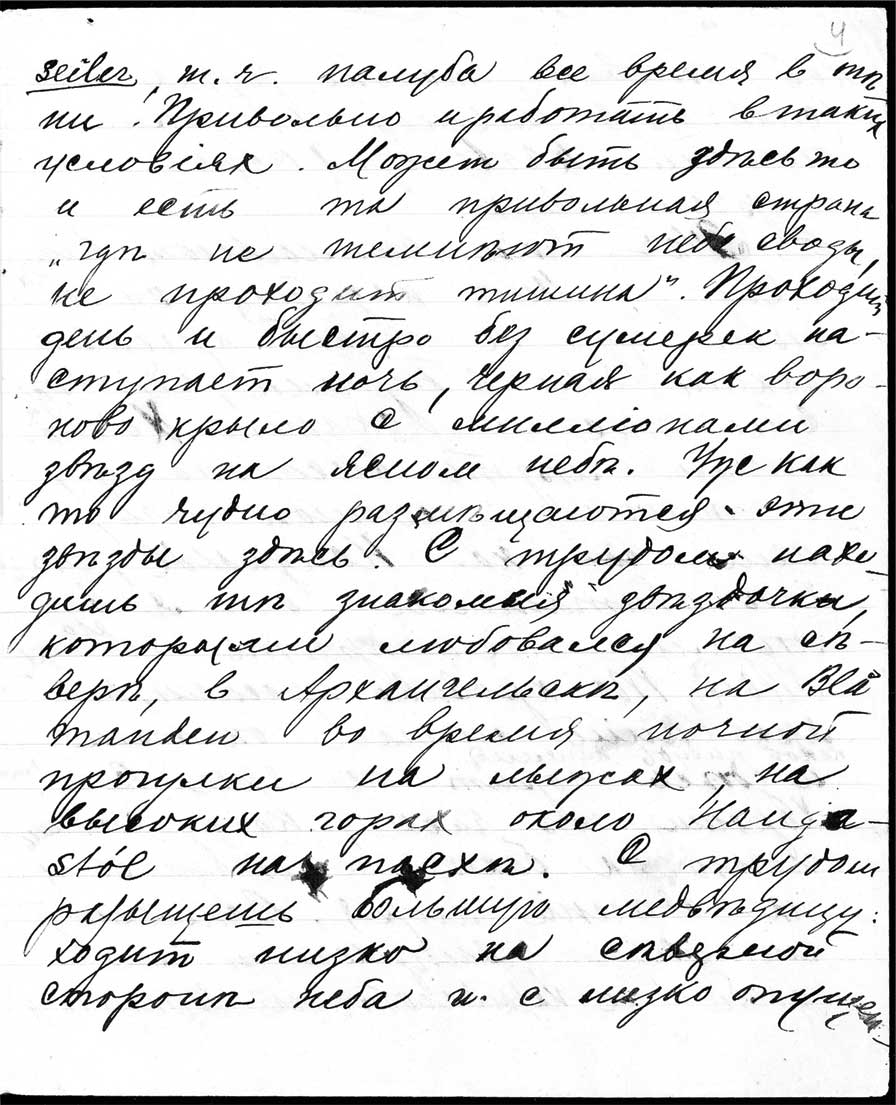 4
seiler, т.ч. палуба все время в тѣ
ни! Привольно и работать в таких
условіях. Может быть здѣсь то
и есть та привольная страна
„гдѣ не темнѣют неба своды,
не проходит тишина". Проходит
день и быстро без сумерек на-
ступает ночь, черная как воро-
ново крыло с милліонами
звѣзд на ясном небѣ. Уж как
то чудно размѣщаются эти
звѣзды здѣсь. С трудом нахо-
дишь тѣ знакомыя звѣздочки,
которыми любовался на сѣ-
верѣ, в Архангельскѣ, на Blå
manden во время ночной
прогулки на лыжах, на
высоких горах около Hauga-
stöl на пасхѣ. С трудом
разыщешь большую медвѣдицу:
ходит низко на сѣверной
сторонѣ неба и с низко опущен-